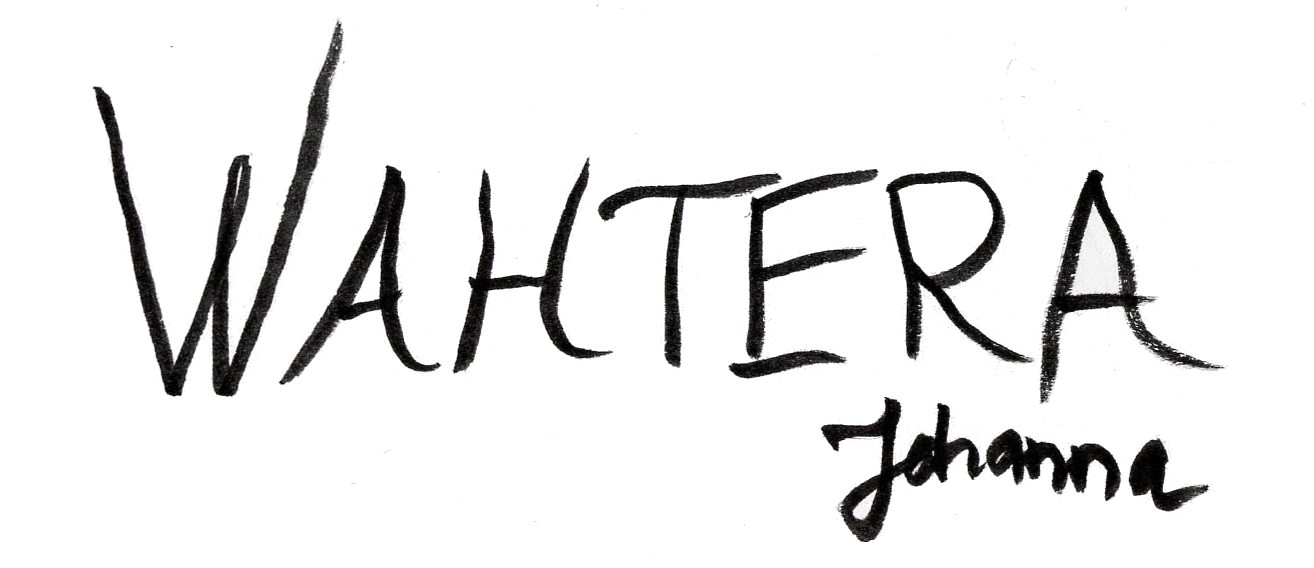 WAHTERA
Johanna